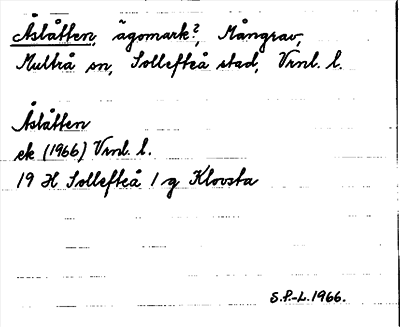 Åslåtten, ägomark?, Mångrav,
Multrå sn, Sollefteå stad, Vrnl. l.
Åslåtten
ek (1966) Vrnl. l.
19 H Sollefteå 1 g Klovsta
S.P.-L. 1966.